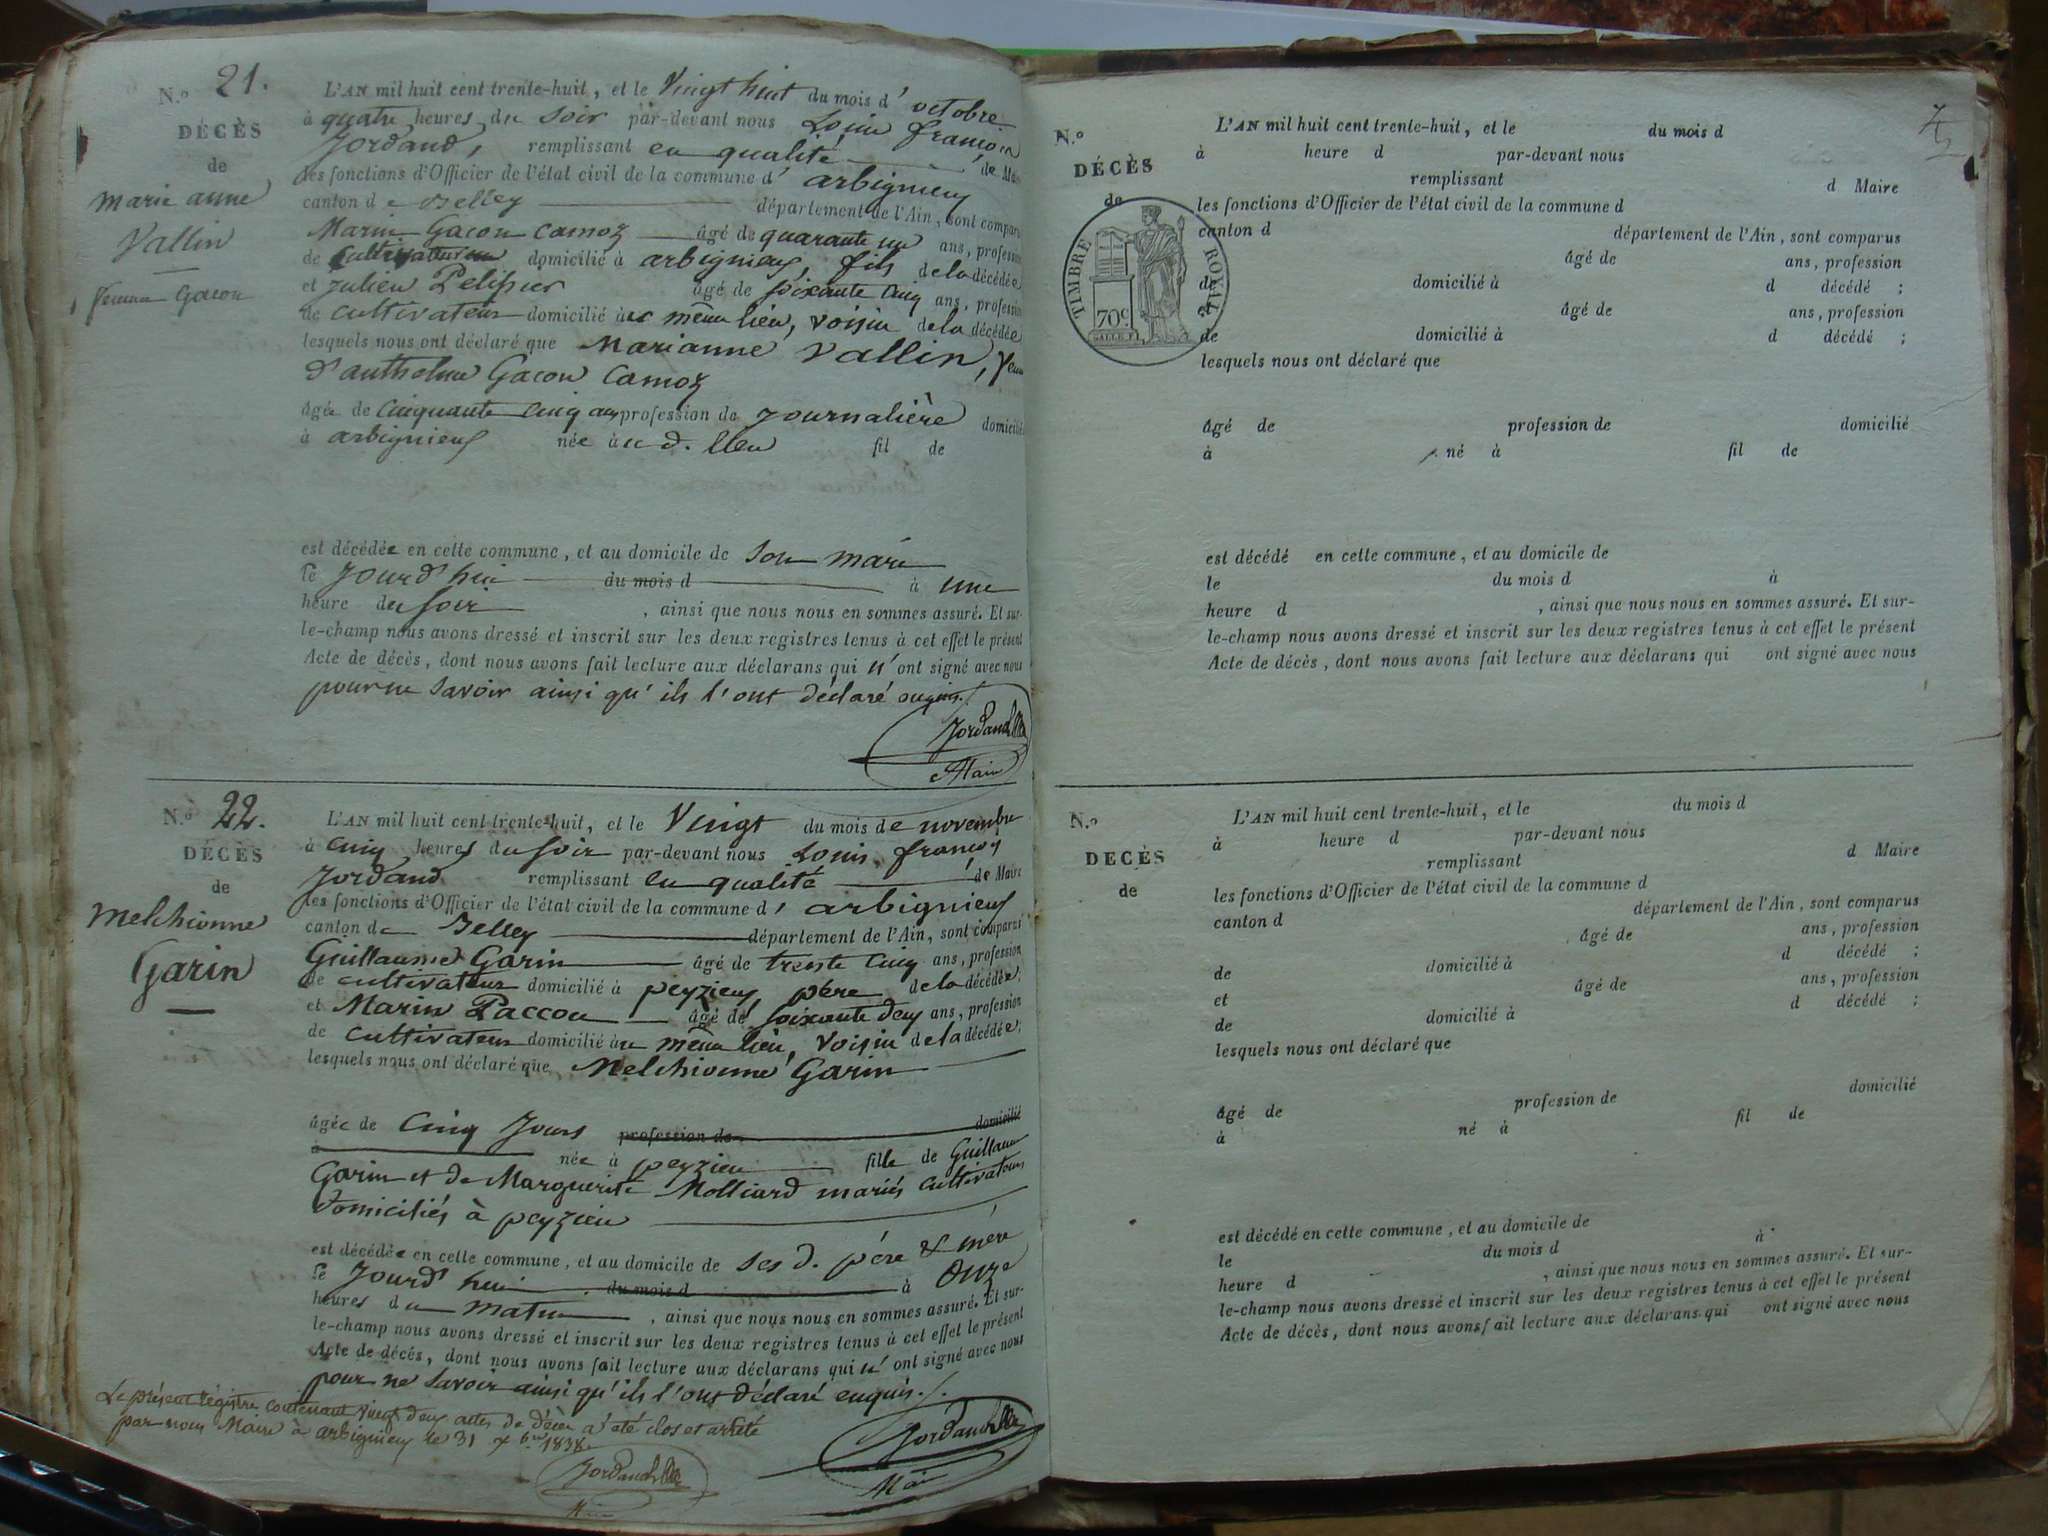 N.º 21.
DÉCÈS
de
marie anne
Vallin
femme Gacon
L'AN mil huit cent trente-huit, et le Vingt huit du mois d' octobre
à quatre heures du soir par-devant nous Louis françois
Jordand, remplissant en qualité de Maire
les fonctions d'Officier de l'état civil de la commune d' arbignieu
canton de Belley département de l'Ain, sont comparus
Marin Gacon camoz âgé de quarante un ans, profession
de cultivateur domicilié à arbignieu, fils de la décédée
et Julien Pelissier âgé de soixante cinq ans, profession
de cultivateur domicilié au même lieu, voisin de la décédée
lesquels nous ont déclaré que Marianne Vallin,
d'anthelme Gacon Camoz
âgée de Cinquante Cinq ans profession de Journalière domicilié
à arbignieu née au d. lieu fil de
est décédée en cette commune, et au domicile de son mari
le Jourd'hui du mois d à une
heure du soir, ainsi que nous nous en sommes assuré. Et sur-
le-champ nous avons dressé et inscrit sur les deux registres tenus à cet effet le présent
Acte de décès, dont nous avons fait lecture aux déclarans qui n'ont signé avec nous
pour ne savoir ainsi qu'ils l'ont déclaré enquis./.
Jordand
Maire
N.º 22.
DÉCÈS
de
Melchionne
Garin
L'AN mil huit cent trente-huit, et le Vingt du mois de novembre
à cinq heures du soir par-devant nous Louis françois
Jordand remplissant en qualité de Maire
les fonctions d'Officier de l'état civil de la commune d' arbignieu
canton de Belley département de l'Ain, sont comparus
Guillaume Garin âgé de trente cinq ans, profession
de cultivateur domicilié à peyzieu, père de la décédée;
et Marin Paccou âgé de soixante deux ans, profession
de cultivateur domicilié au même lieu, voisin de la décédée;
lesquels nous ont déclaré que Melchionne Garin
âgée de Cinq Jours profession de domicilié
à née à peyzieu fille de Guillaume
Garin et de Marguerite Molliard mariés cultivateurs
domiciliés à peyzieu
est décédée en cette commune, et au domicile de ses d. père & mère
le Jourd'hui du mois d à Onze
heures du matin, ainsi que nous nous en sommes assuré. Et sur-
le-champ nous avons dressé et inscrit sur les deux registres tenus à cet effet le présent
Acte de décés, dont nous avons fait lecture aux déclarans qui n'ont signé avec nous
pour ne savoir ainsi qu'ils l'ont déclaré enquis./.
Jordand
Maire
Le présent registre contenant vingt deux actes de décès a été clos et arrêté
par nous Maire à arbignieu le 31 xbre 1838
Jordand
Maire
N.º
DÉCÈS
de
TIMBRE ROYAL
70c
L'AN mil huit cent trente-huit, et le du mois d
à heure d par-devant nous
remplissant d Maire
les fonctions d'Officier de l'état civil de la commune d
canton d département de l'Ain, sont comparus
âgé de ans, profession
de domicilié à d décédé ;
et âgé de ans, profession
de domicilié à d décédé ;
lesquels nous ont déclaré que
âgé de profession de domicilié
à né à fil de
est décédé en cette commune, et au domicile de
le du mois d à
heure d , ainsi que nous nous en sommes assuré. Et sur-
le-champ nous avons dressé et inscrit sur les deux registres tenus à cet effet le présent
Acte de décès, dont nous avons fait lecture aux déclarans qui ont signé avec nous
N.º
DECÈS
de
L'AN mil huit cent trente-huit, et le du mois d
à heure d par-devant nous
remplissant d Maire
les fonctions d'Officier de l'état civil de la commune d
canton d département de l'Ain, sont comparus
âgé de ans, profession
de domicilié à d décédé ;
et âgé de ans, profession
de domicilié à d décédé ;
lesquels nous ont déclaré que
âgé de profession de domicilié
à né à fil de
est décédé en cette commune, et au domicile de
le du mois d à
heure d , ainsi que nous nous en sommes assuré. Et sur-
le-champ nous avons dressé et inscrit sur les deux registres tenus à cet effet le présent
Acte de décès, dont nous avons fait lecture aux déclarans qui ont signé avec nous